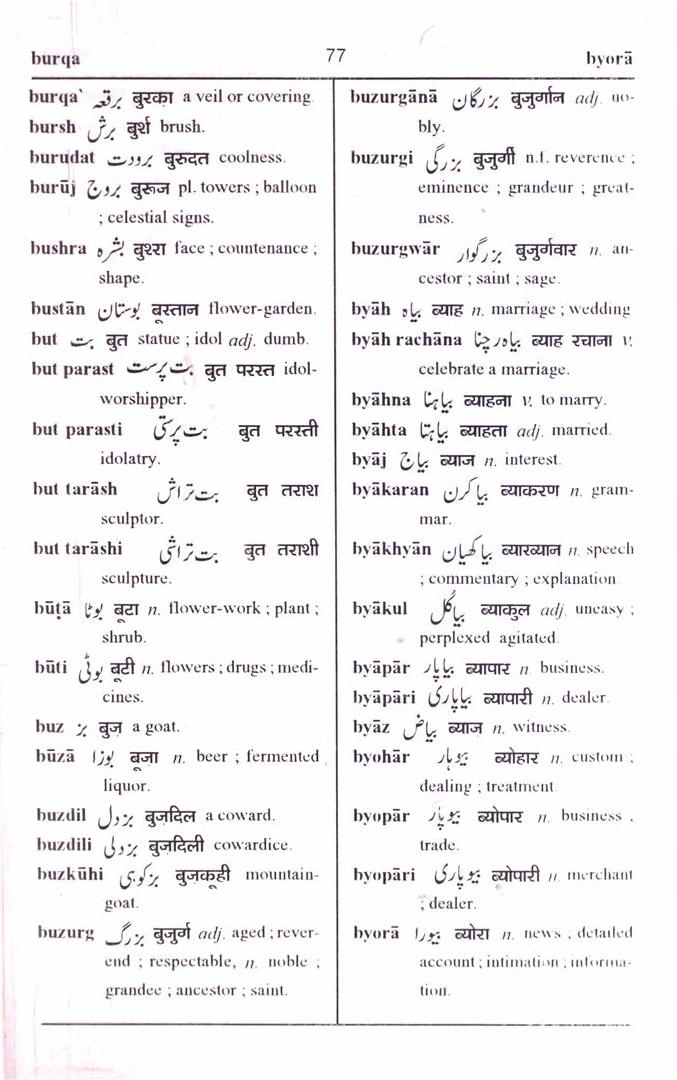 burqa 77 byorā
burqaʽ برقعہ बुरका a veil or covering.
bursh برش बुर्श brush.
burudat برودت बुरुदत coolness.
burūj بروج बुरूज pl. towers ; balloon
; celestial signs.
bushra بشرہ बुश्रा face ; countenance ;
shape.
bustān بوستان बूस्तान flower-garden.
but بت बुत statue ; idol adj. dumb.
but parast بت پرست बुत परस्त idol-
worshipper.
but parasti بت پرستی बुत परस्ती
idolatry.
but tarāsh بت تراش बुत तराश
sculptor.
but tarāshi بت تراشی बुत तराशी
sculpture.
būṭā بوٹا बूटा n. flower-work ; plant ;
shrub.
būti بوٹی बूटी n. flowers ; drugs ; medi-
cines.
buz بز बुज़ a goat.
būzā بوزا बूज़ा n. beer ; fermented
liquor.
buzdil بزدل बुज़दिल a coward.
buzdili بزدلی बुज़दिली cowardice.
buzkūhi بزکوہی बुज़कूही mountain-
goat.
buzurg بزرگ बुजुर्ग adj. aged ; rever-
end ; respectable, n. noble ;
grandee ; ancestor ; saint.
buzurgānā بزرگان बुजुर्गान adj. no-
bly.
buzurgi بزرگی बुजुर्गी n.f. reverence ;
eminence ; grandeur ; great-
ness.
buzurgwār بزرگوار बुजुर्गवार n. an-
cestor ; saint ; sage.
byāh بیاہ ब्याह n. marriage ; wedding
byāh rachāna بیاہ رچنا ब्याह रचाना v.
celebrate a marriage.
byāhna بیاہنا ब्याहना v. to marry.
byāhta بیاہتا ब्याहता adj. married.
byāj بیاج ब्याज n. interest.
byākaran بیاکرن ब्याकरण n. gram-
mar.
byākhyān بیاکھیان ब्याख्यान n. speech
; commentary ; explanation.
byākul بیاکل ब्याकुल adj. uneasy ;
perplexed agitated.
byāpār بیاپار ब्यापार n. business.
byāpāri بیاپاری ब्यापारी n. dealer.
byāz بیاض ब्याज n. witness.
byohār بیوہار ब्योहार n. custom ;
dealing ; treatment.
byopār بیوپار ब्योपार n. business ,
trade.
byopāri بیوپاری ब्योपारी n. merchant
; dealer.
byorā بیورا ब्योरा n. news , detailed
account ; intimation ; informa-
tion.